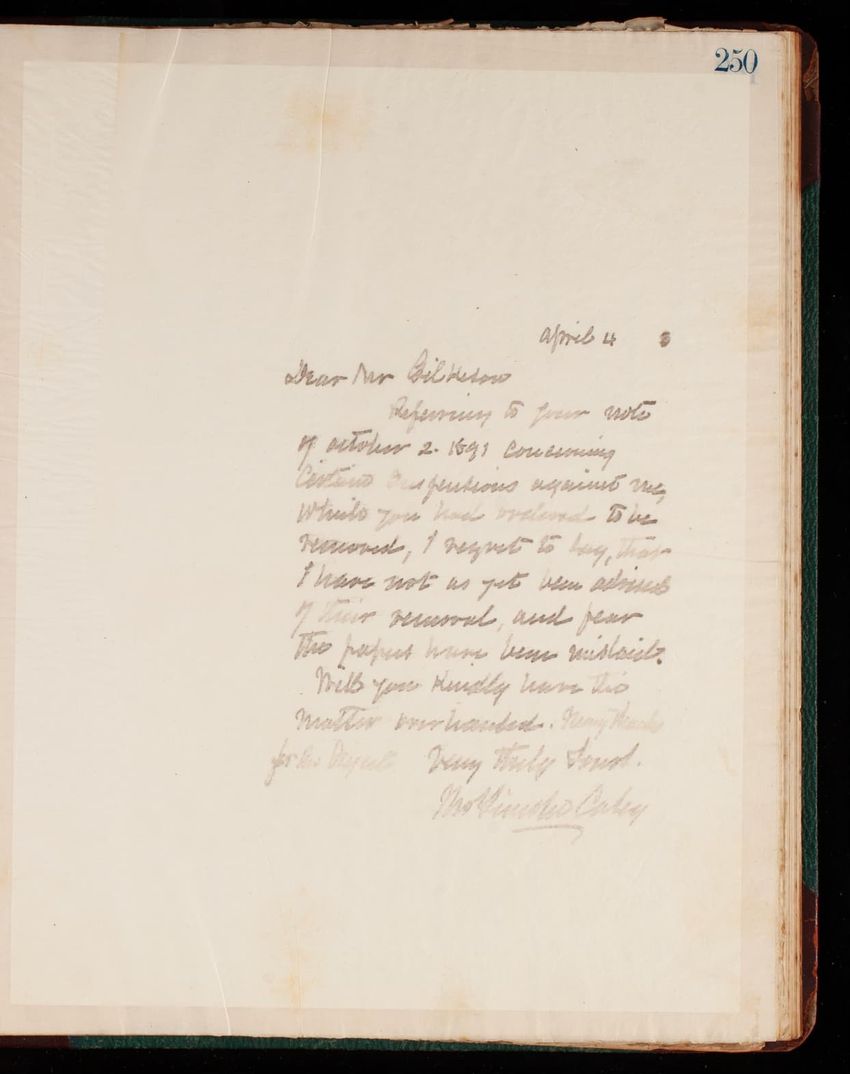 250
April 4 3
Dear Mr Gilkeson
Referring to your note
of October 2. 1891 concerning
Certain Suspensions against me,
which you had ordered to be
removed, I regret to say, that
I have not as yet been advised
of their removal, and fear
the papers have been mislaid.
Will you Kindly have the
matter overhauled. Many thanks
for the Digest Very truly Yours.
Thos Lincoln Casey